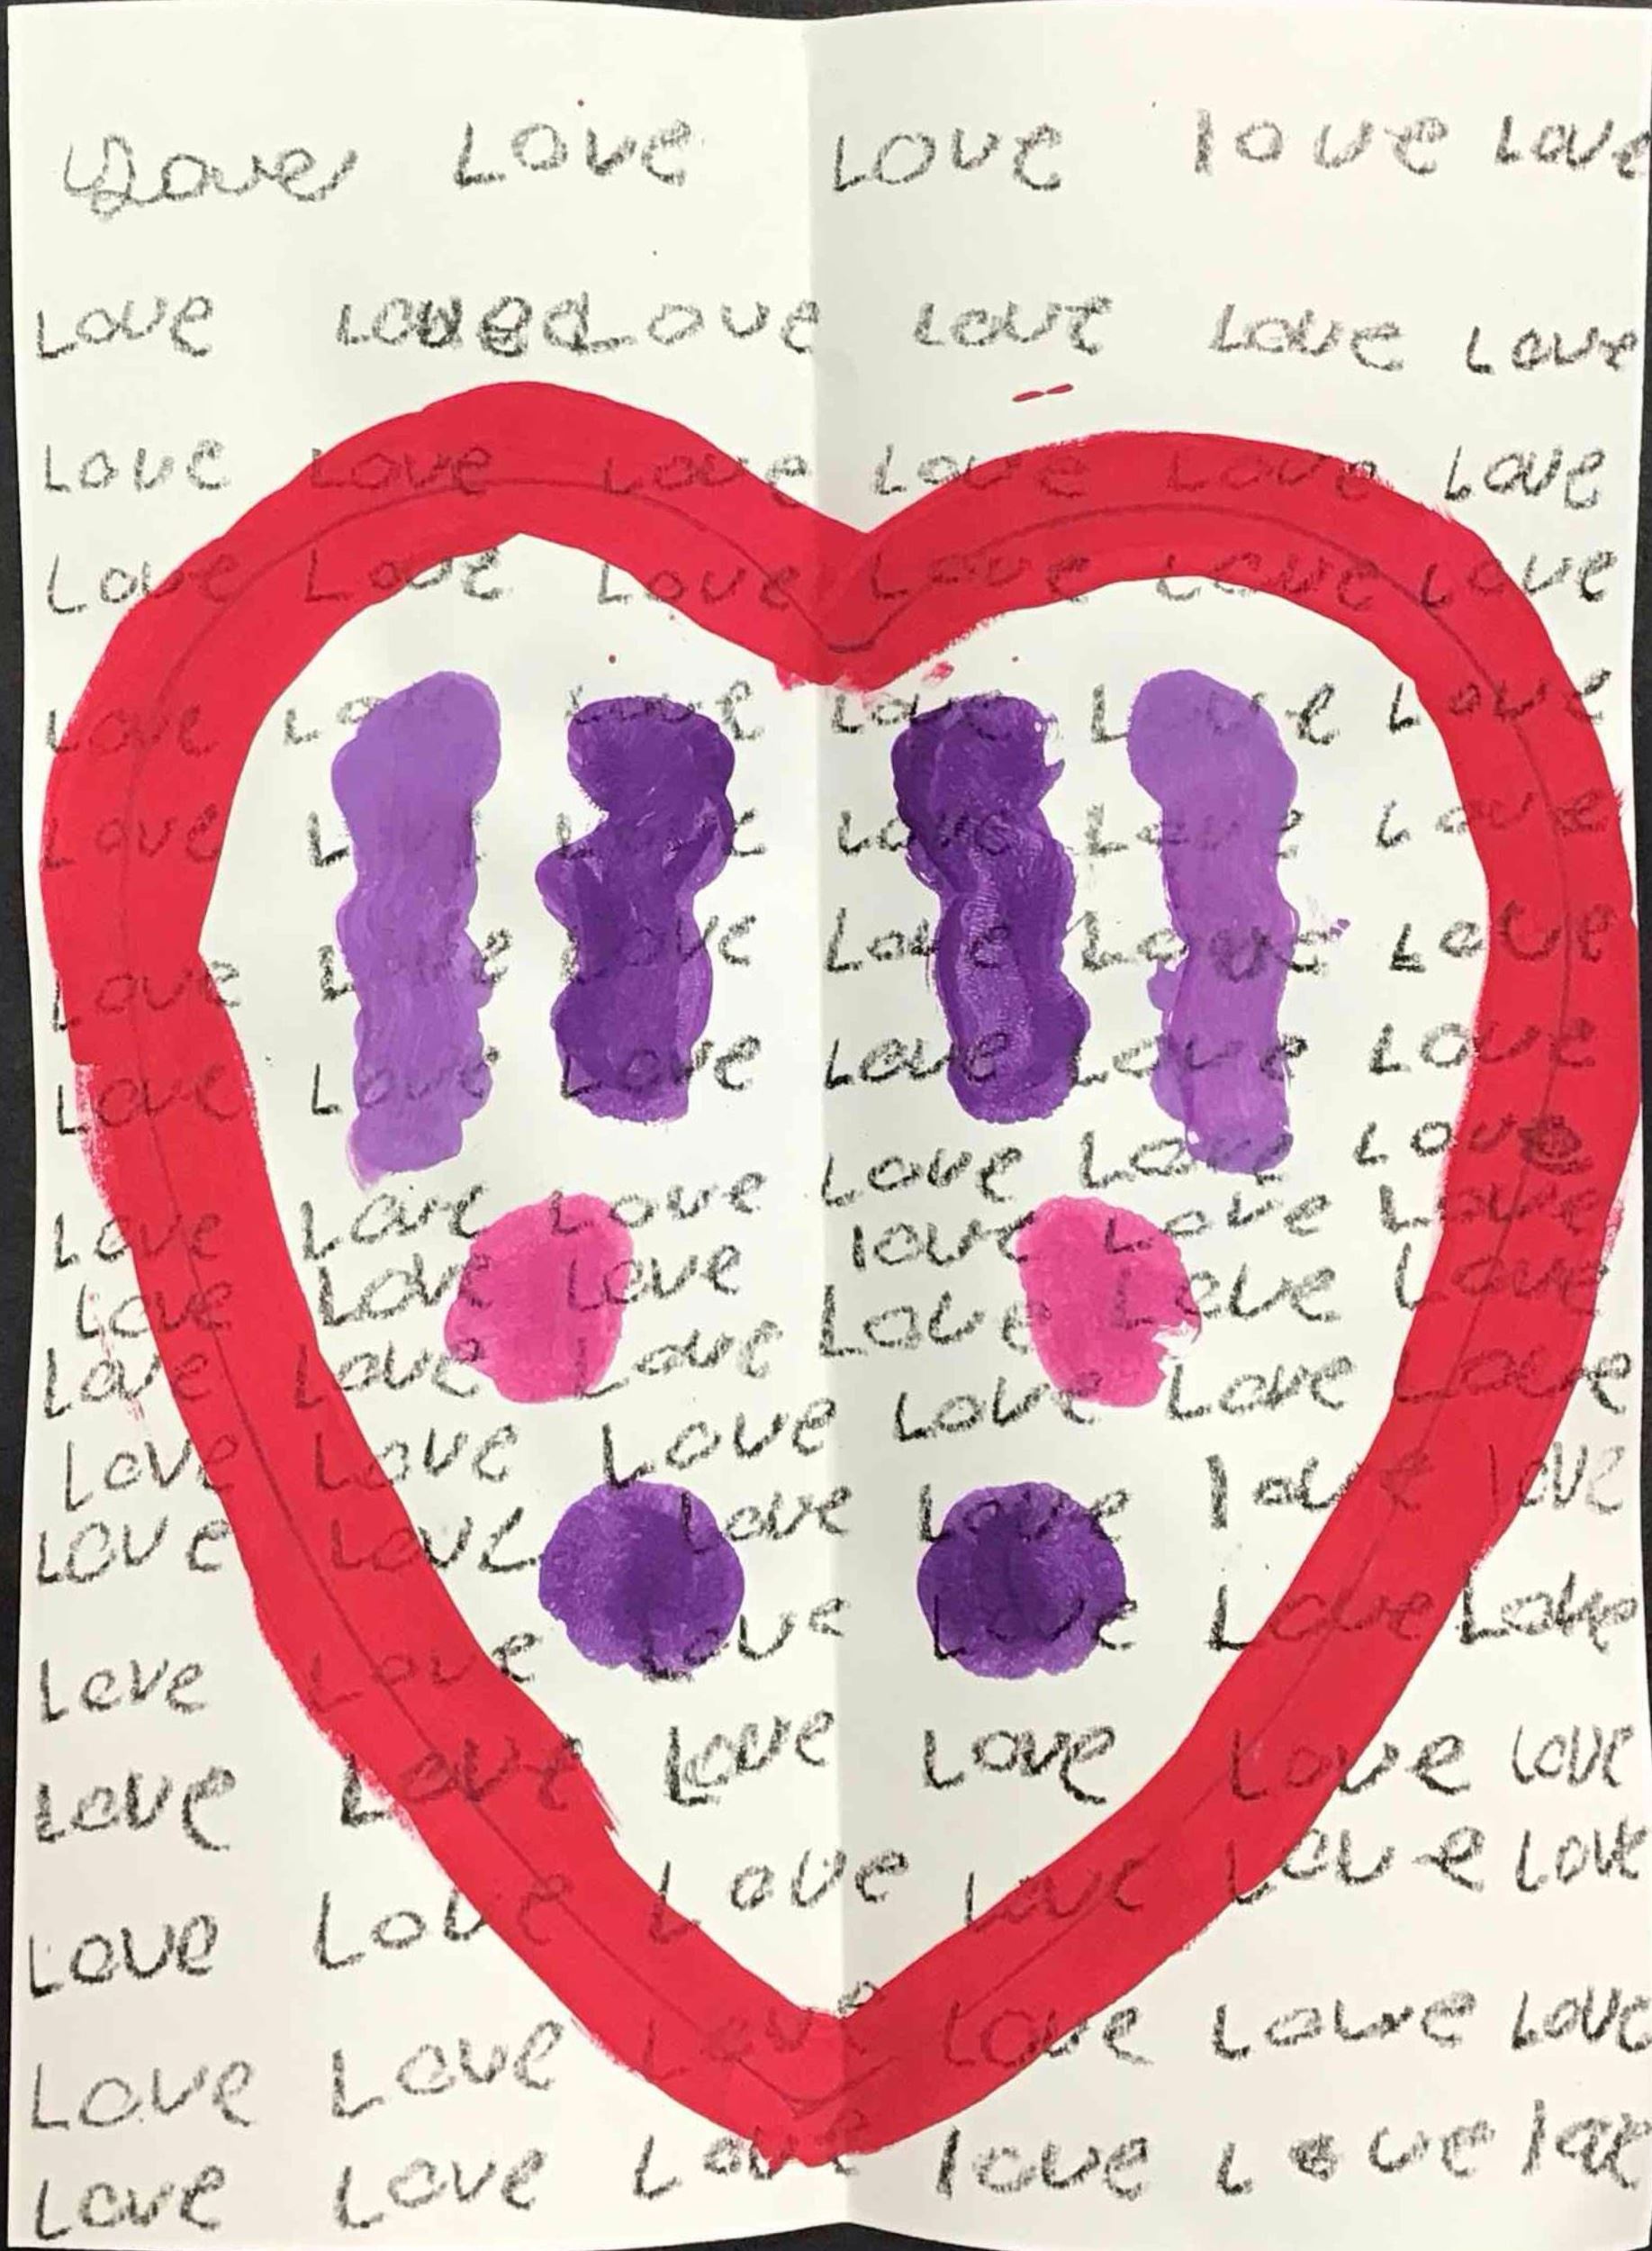 Love Love love Love
Love Love Love Love Love
Love Love Love Love Love Love
Love Love Love Love Love Love
Love Love Love Love
Love Love Love Love
Love Love Love Love Love
Love Love Love Love Love Love
Love Love Love
Love Love Love love Love Love
Love Love Love Love Love Love
Love Love Love Love Love
Love Love Love Love
Love Love Love Love love love
Love Love Love Love Love
Love Love Love Love Love Love
Love Love Love Love Love Love
Love Love Love Love Love Love
Love Love Love love Love